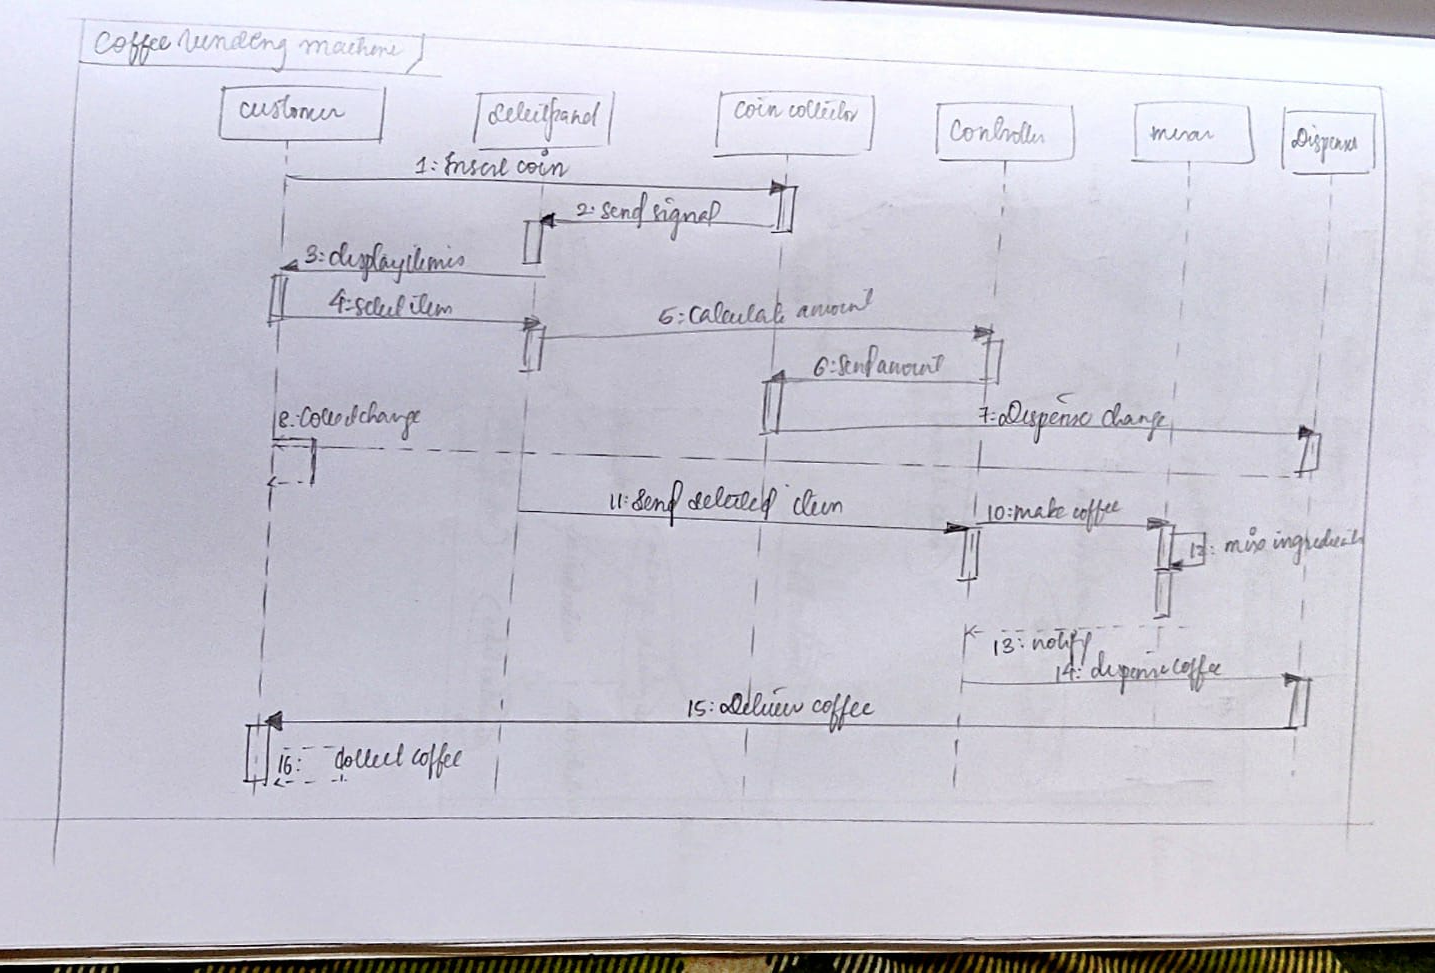 Coffee vending machine
customer
Coin collector
Controller
Dispenser
1: Insert coin
2: send signal
3: display items
4: select item
5: Calculate amount
6: send amount
7: Dispense change
8: Collect change
11: Send selected item
10: make coffee
12: mix ingredients
13: notify
14: dispense coffee
15: Deliver coffee
16: Collect coffee